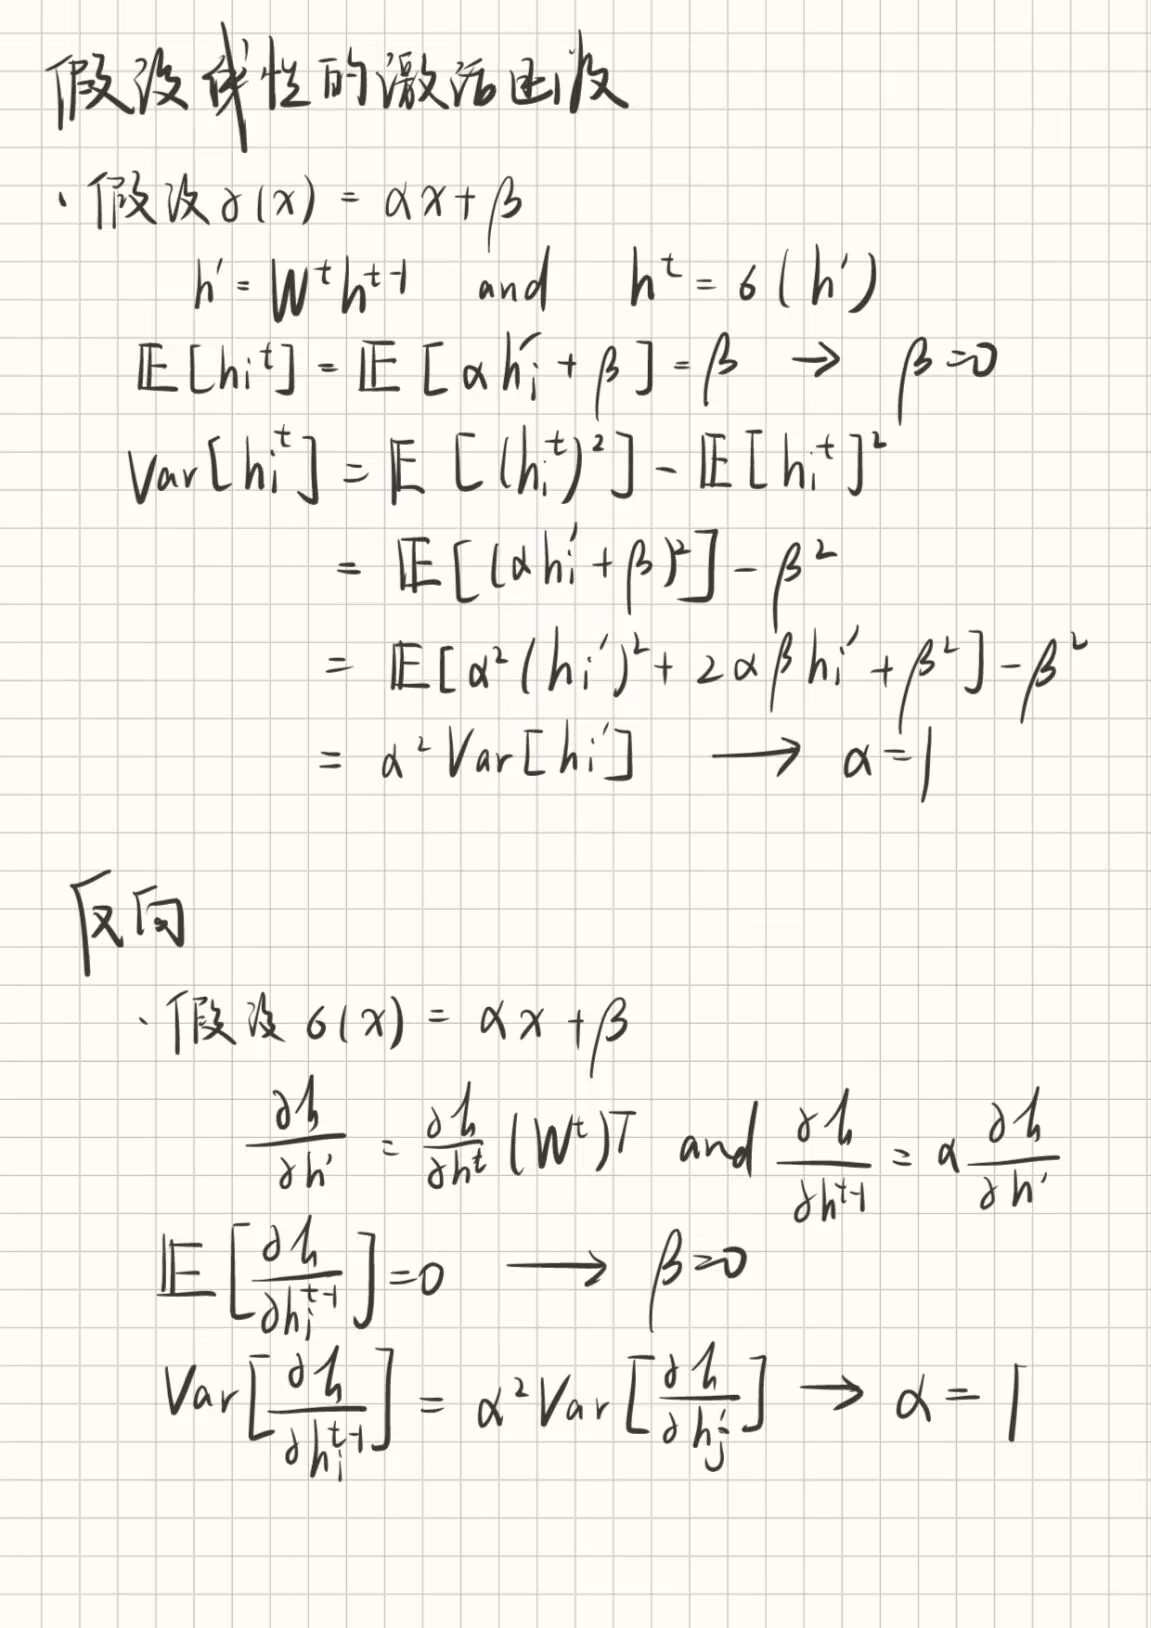 假设线性的激活函数
· 假设 σ(x) = αx + β
h' = W^t h^{t-1} and h^t = σ(h')
𝔼[h_i^t] = 𝔼[αh_i' + β] = β → β=0
Var[h_i^t] = 𝔼[(h_i^t)^2] - 𝔼[h_i^t]^2
= 𝔼[(αh_i' + β)^2] - β^2
= 𝔼[α^2(h_i')^2 + 2αβh_i' + β^2] - β^2
= α^2 Var[h_i'] → α=1
反向
· 假设 σ(x) = αx + β
∂h/∂h' = ∂h/∂h^t (W^t)T and ∂h/∂h^{t-1} = α ∂h/∂h'
𝔼[∂h/∂h_i^{t-1}] = 0 → β=0
Var[∂h/∂h_i^{t-1}] = α^2 Var[∂h/∂h_j'] → α = 1